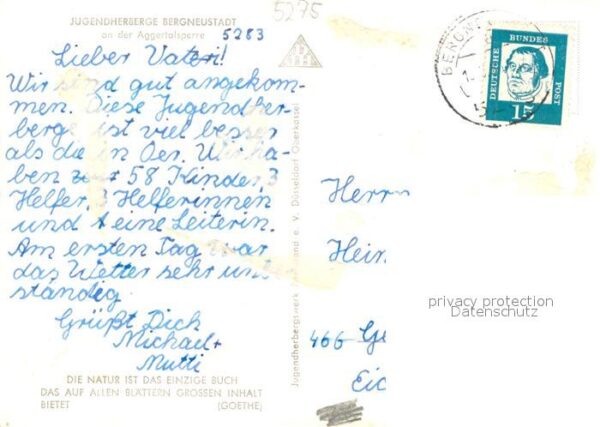 5275
JUGENDHERBERGE BERGNEUSTADT
an der Aggertalsperre
5283
Lieber Vater!
Wir sind gut angekom-
men. Diese Jugendher-
berge ist viel besser
als die in Oer. Wir ha-
ben 58 Kinder, 3
Helfer, 3 Helferinnen
und eine Leiterin.
Am ersten Tag war
das Wetter sehr unbe
ständig.
Grüßt Dich
Michael +
Mutti
DIE NATUR IST DAS EINZIGE BUCH
DAS AUF ALLEN BLÄTTERN GROSSEN INHALT
BIETET (GOETHE)
Jugendherbergswerk e. V. Düsseldorf Oberkassel
DEUTSCHE BUNDES POST
15
BERGNE
Herrn
Hein
466 Ge
privacy protection
Datenschutz